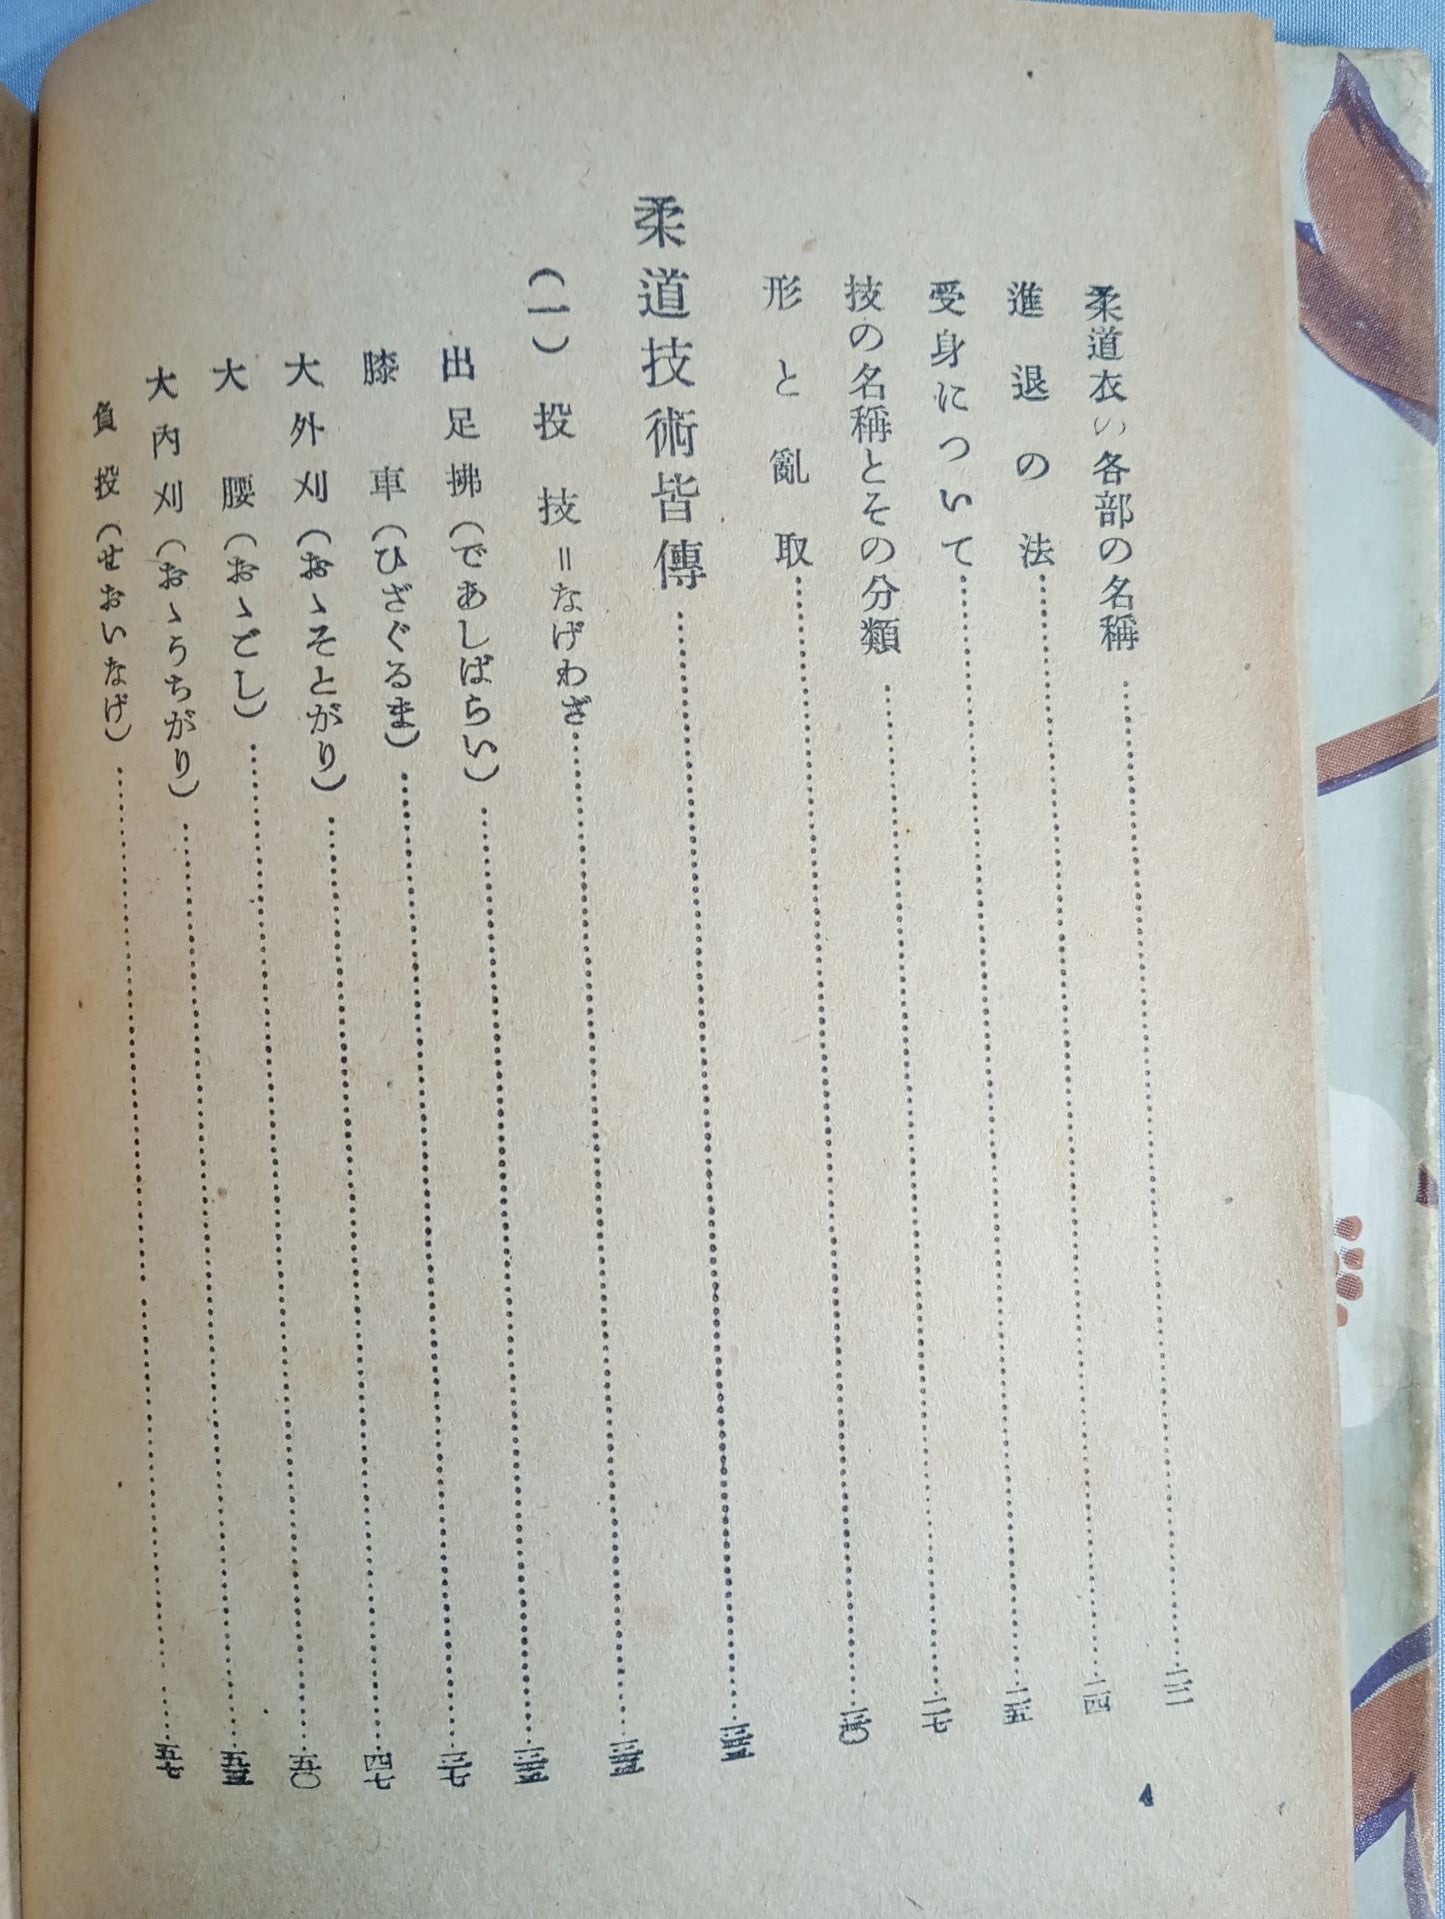 柔道衣の各部の名稱……二二
進退の法……二四
受身について……二五
技の名稱とその分類……二七
形と亂取……三〇
柔道技術皆傳……三五
(一) 投技=なげわざ……三五
出足拂(であしばらい)……三五
膝車(ひざぐるま)……三七
大外刈(おゝそとがり)……四七
大腰(おゝごし)……五〇
大內刈(おゝうちがり)……五五
負投(せおいなげ)……五七
4